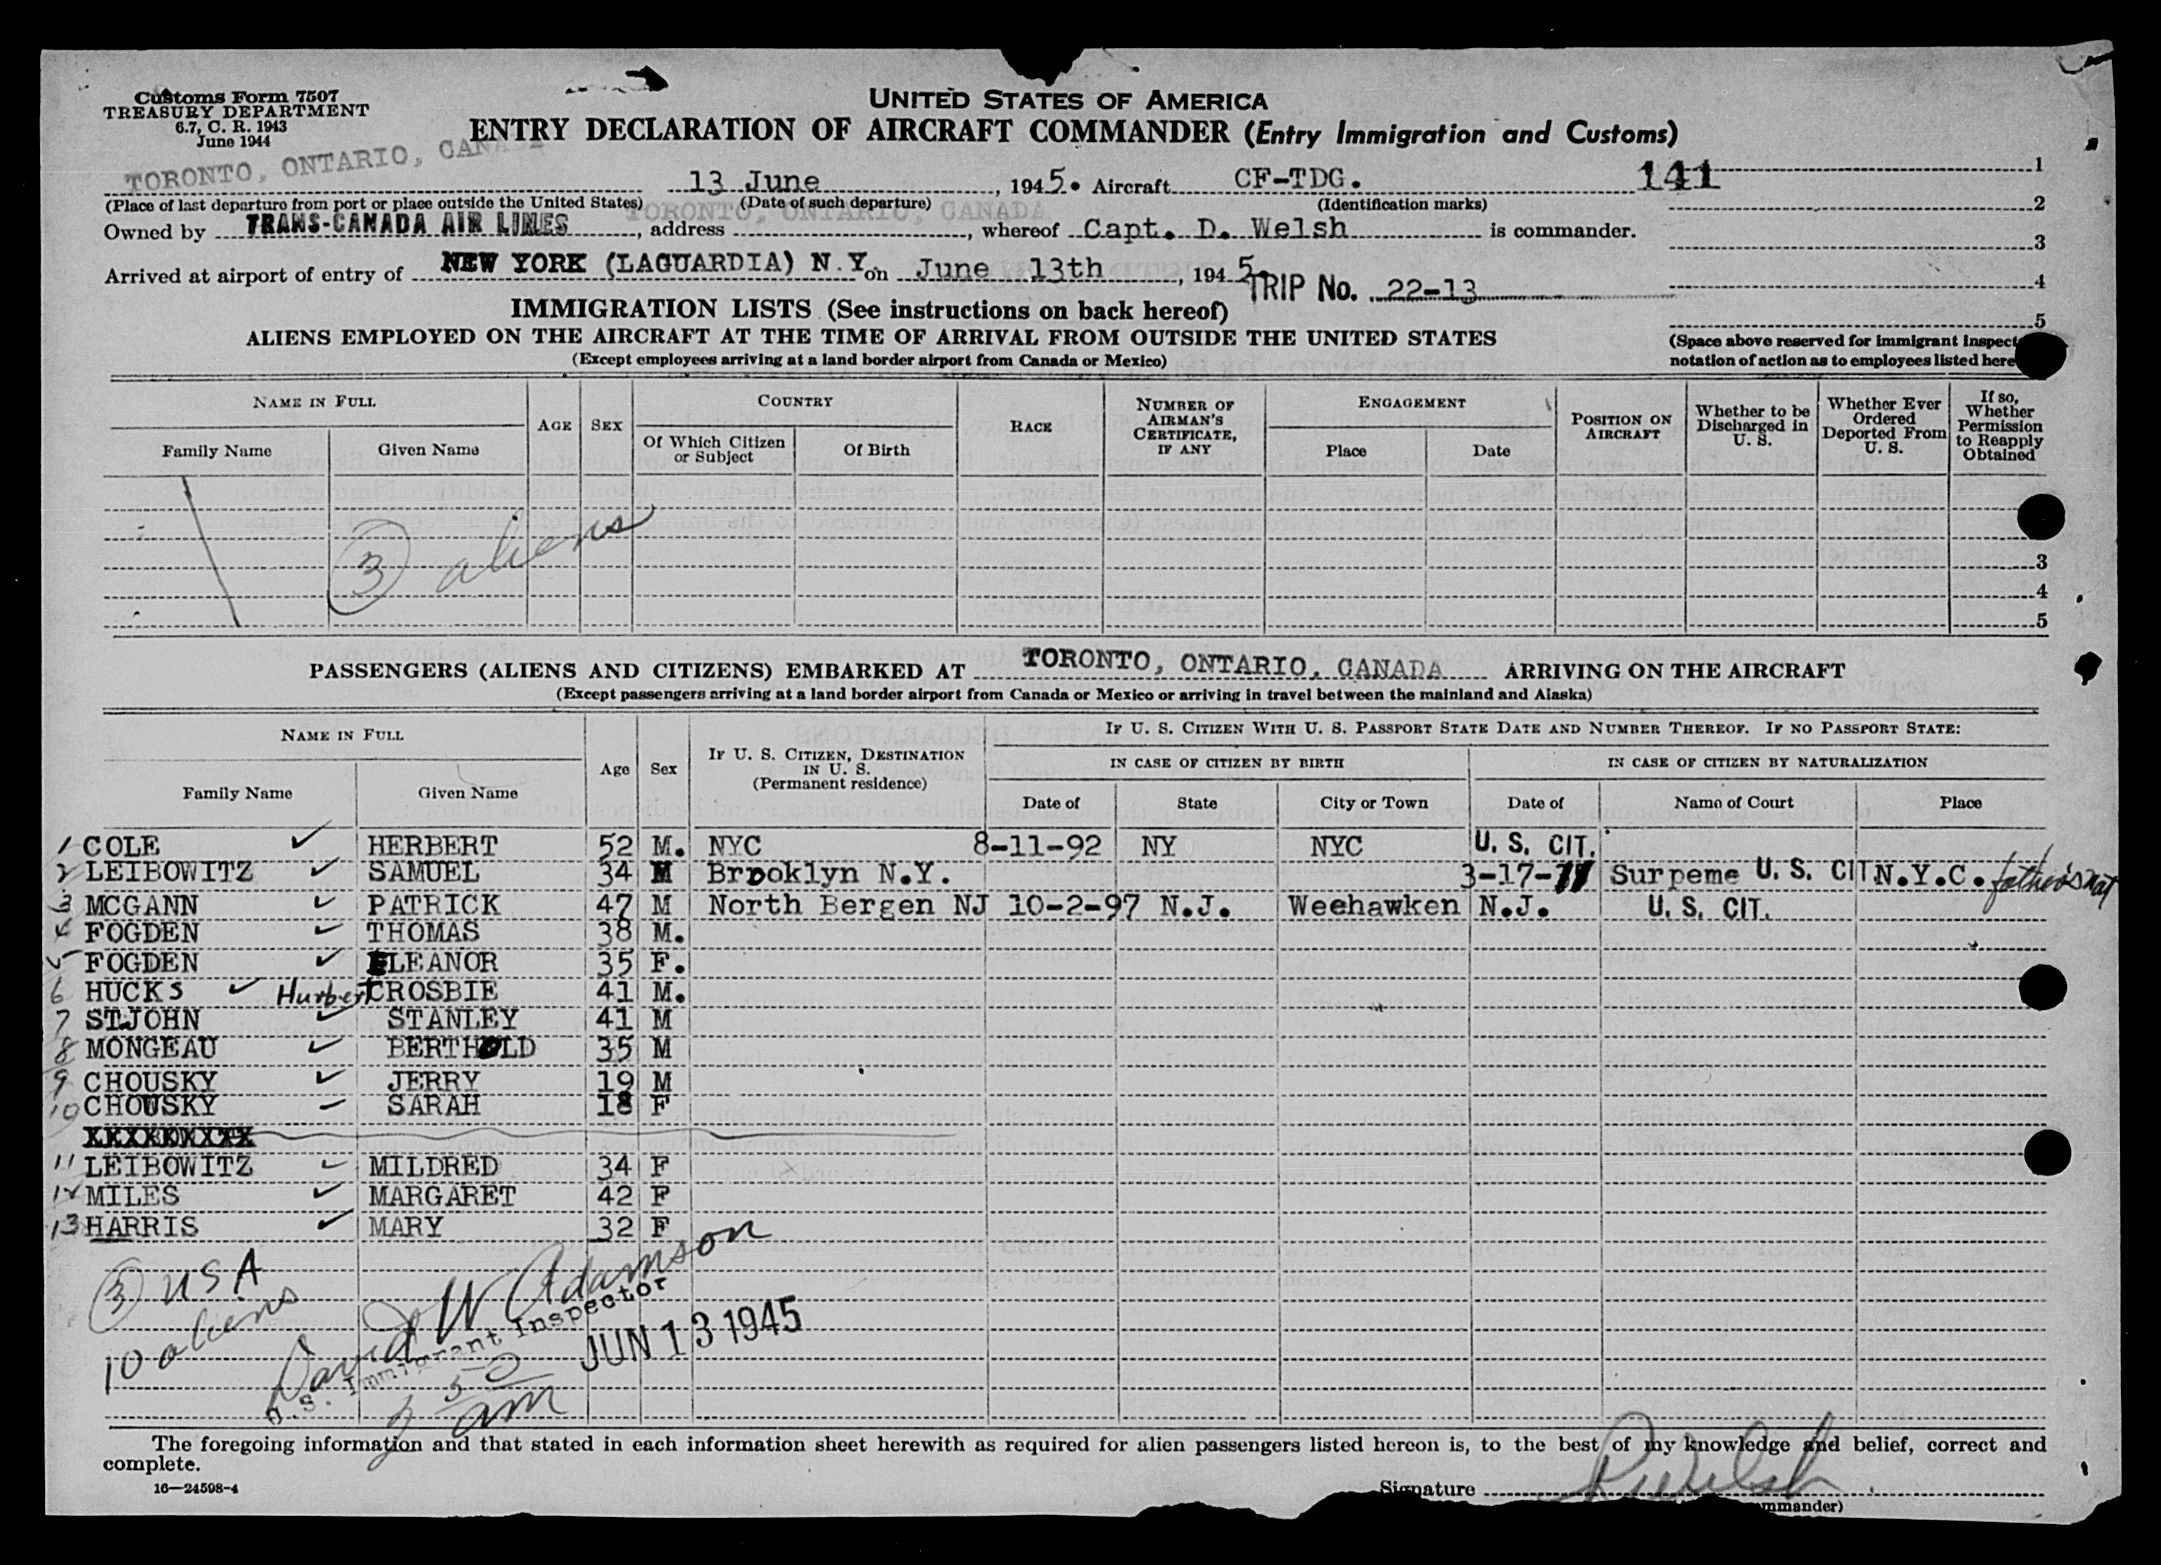 Customs Form 7507
TREASURY DEPARTMENT
6.7, C. R. 1943
June 1944
UNITED STATES OF AMERICA
ENTRY DECLARATION OF AIRCRAFT COMMANDER (Entry Immigration and Customs)
TORONTO, ONTARIO, CANADA 13 June, 1945. Aircraft CF-TDG. 141 1
(Place of last departure from port or place outside the United States) (Date of such departure) (Identification marks) 2
TORONTO, ONTARIO, CANADA
Owned by TRANS-CANADA AIR LINES, address, whereof Capt. D. Welsh is commander. 3
Arrived at airport of entry of NEW YORK (LAGUARDIA) N.Y. on June 13th, 1945
TRIP No. 22-13 4
IMMIGRATION LISTS (See instructions on back hereof) 5
ALIENS EMPLOYED ON THE AIRCRAFT AT THE TIME OF ARRIVAL FROM OUTSIDE THE UNITED STATES
(Except employees arriving at a land border airport from Canada or Mexico)
(Space above reserved for immigrant inspect
notation of action as to employees listed here
NAME IN FULL
Family Name Given Name
AGE SEX
COUNTRY
Of Which Citizen or Subject Of Birth
RACE
NUMBER OF AIRMAN'S CERTIFICATE, IF ANY
ENGAGEMENT
Place Date
POSITION ON AIRCRAFT
Whether to be Discharged in U. S.
Whether Ever Ordered Deported From U. S.
If so, Whether Permission to Reapply Obtained
3 aliens
3
4
5
PASSENGERS (ALIENS AND CITIZENS) EMBARKED AT TORONTO, ONTARIO, CANADA ARRIVING ON THE AIRCRAFT
(Except passengers arriving at a land border airport from Canada or Mexico or arriving in travel between the mainland and Alaska)
NAME IN FULL
Family Name Given Name
Age Sex
IF U. S. CITIZEN, DESTINATION IN U. S. (Permanent residence)
IF U. S. CITIZEN WITH U. S. PASSPORT STATE DATE AND NUMBER THEREOF. IF NO PASSPORT STATE:
IN CASE OF CITIZEN BY BIRTH
Date of State City or Town
IN CASE OF CITIZEN BY NATURALIZATION
Date of Name of Court Place
1 COLE HERBERT 52 M. NYC 8-11-92 NY NYC U. S. CIT.
2 LEIBOWITZ SAMUEL 34 M Brooklyn N.Y. 3-17-11 Surpeme U. S. CIT N.Y.C. father's nat
3 MCGANN PATRICK 47 M North Bergen NJ 10-2-97 N.J. Weehawken N.J. U. S. CIT.
4 FOGDEN THOMAS 38 M.
5 FOGDEN ELEANOR 35 F.
6 HUCKS Hurbert CROSBIE 41 M.
7 STJOHN STANLEY 41 M
8 MONGEAU BERTHOLD 35 M
9 CHOUSKY JERRY 19 M
10 CHOUSKY SARAH 18 F
11 LEIBOWITZ MILDRED 34 F
12 MILES MARGARET 42 F
13 HARRIS MARY 32 F
3 USA
10 aliens
David W Adamson
U.S. Immigrant Inspector
JUN 13 1945
50
am
The foregoing information and that stated in each information sheet herewith as required for alien passengers listed hereon is, to the best of my knowledge and belief, correct and
complete.
16—24598-4
Signature D Welsh
mmander)